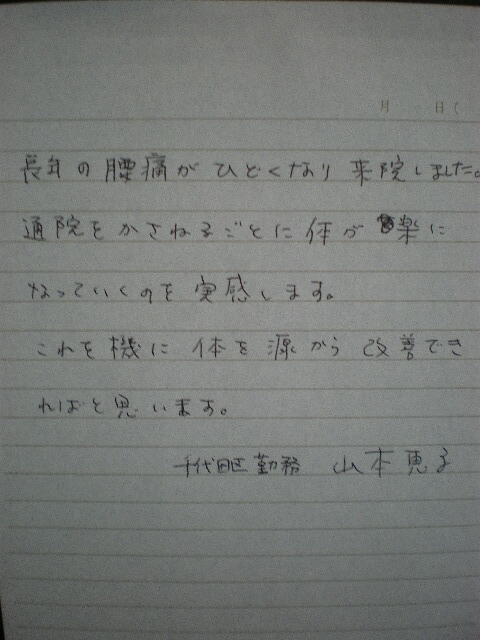 月 日(
長年の腰痛がひどくなり来院しました。
通院をかさねるごとに体が楽に
なっていくのを実感します。
これを機に体を源から改善でき
ればと思います。
千代田区勤務 山本恵子